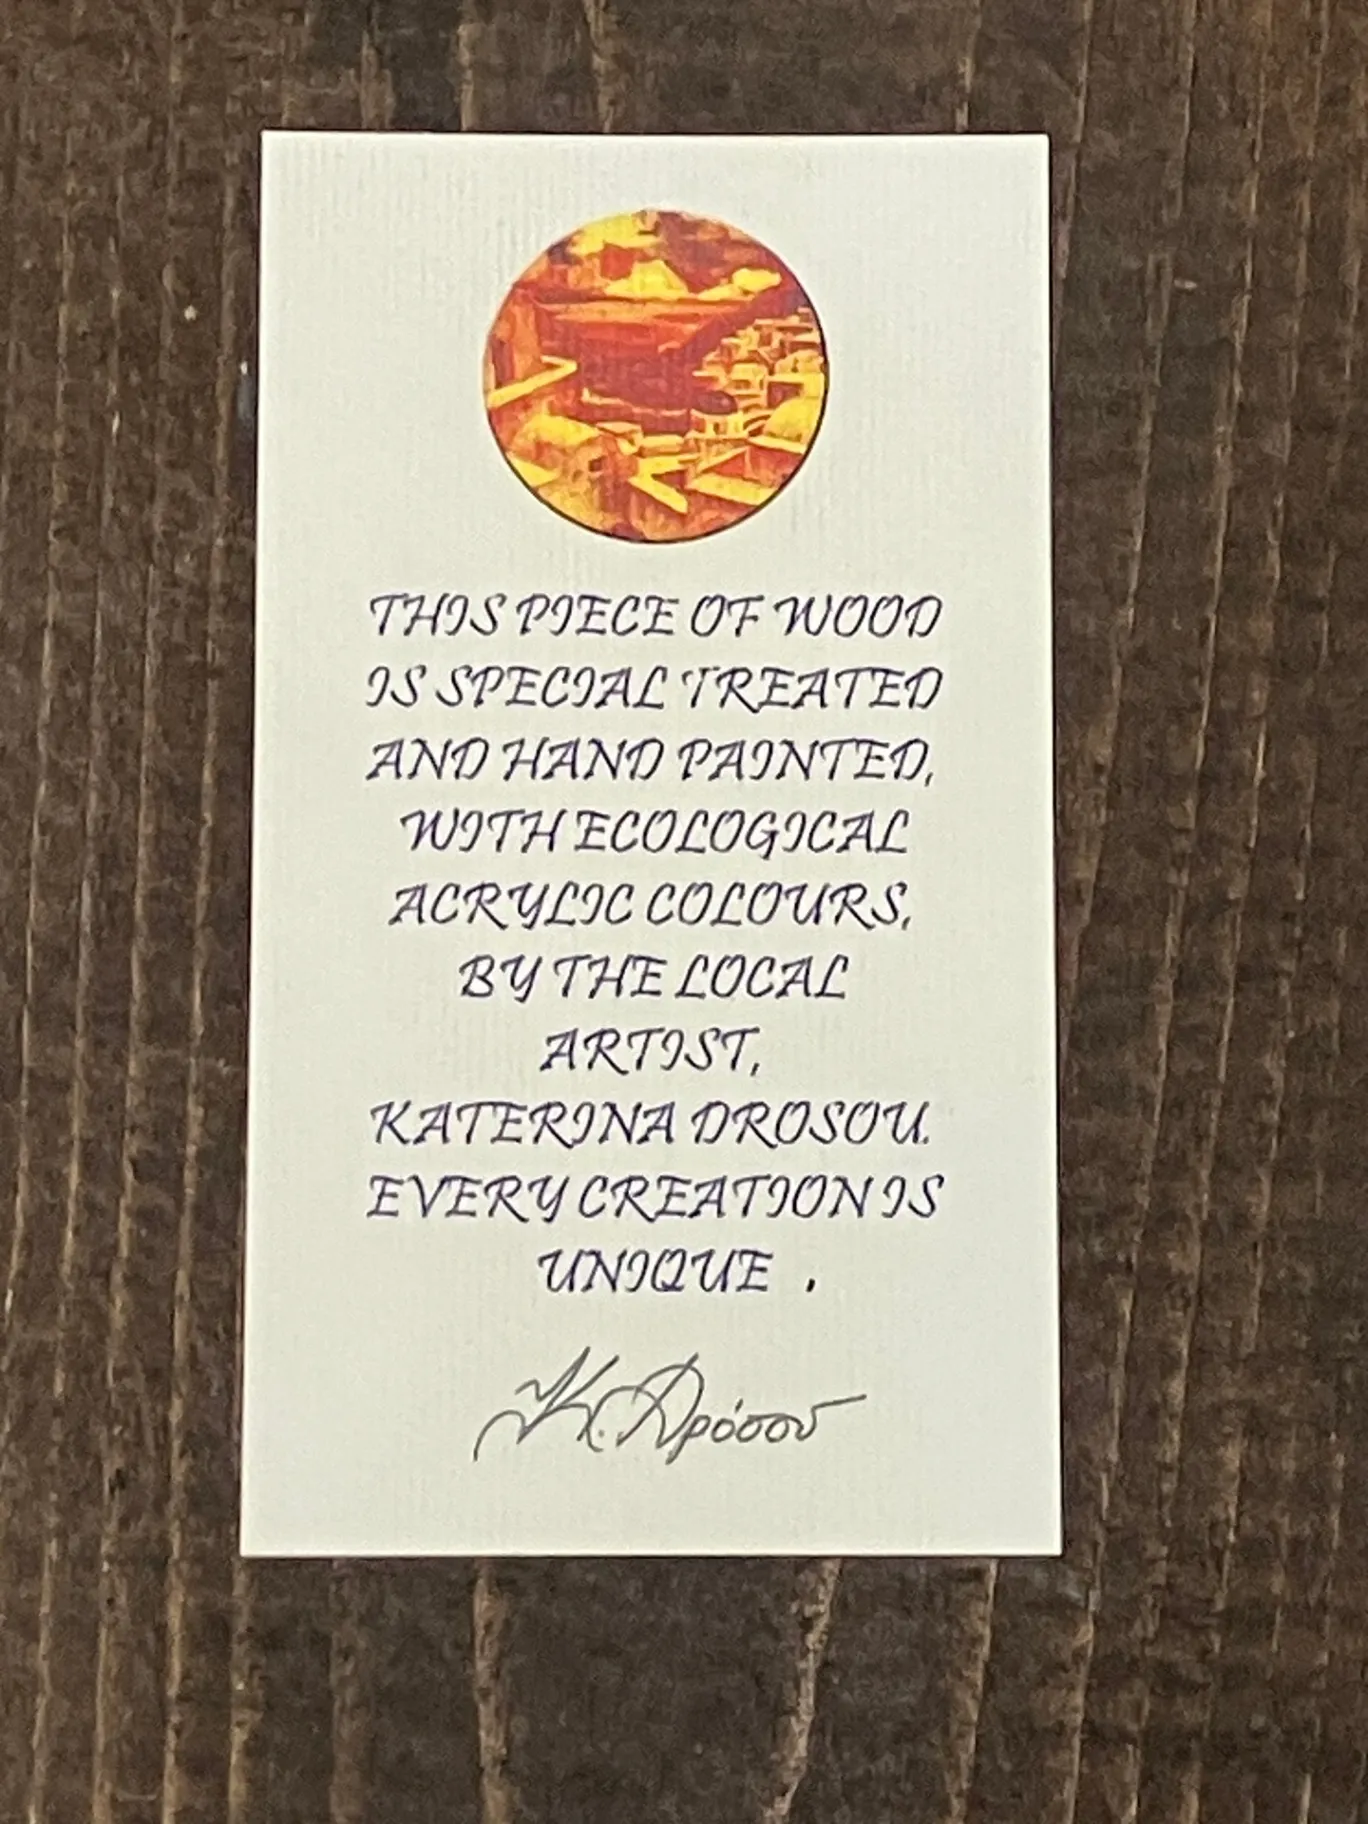 THIS PIECE OF WOOD
IS SPECIAL TREATED
AND HAND PAINTED,
WITH ECOLOGICAL
ACRYLIC COLOURS,
BY THE LOCAL
ARTIST,
KATERINA DROSOU.
EVERY CREATION IS
UNIQUE .
Κ. Δρόσου